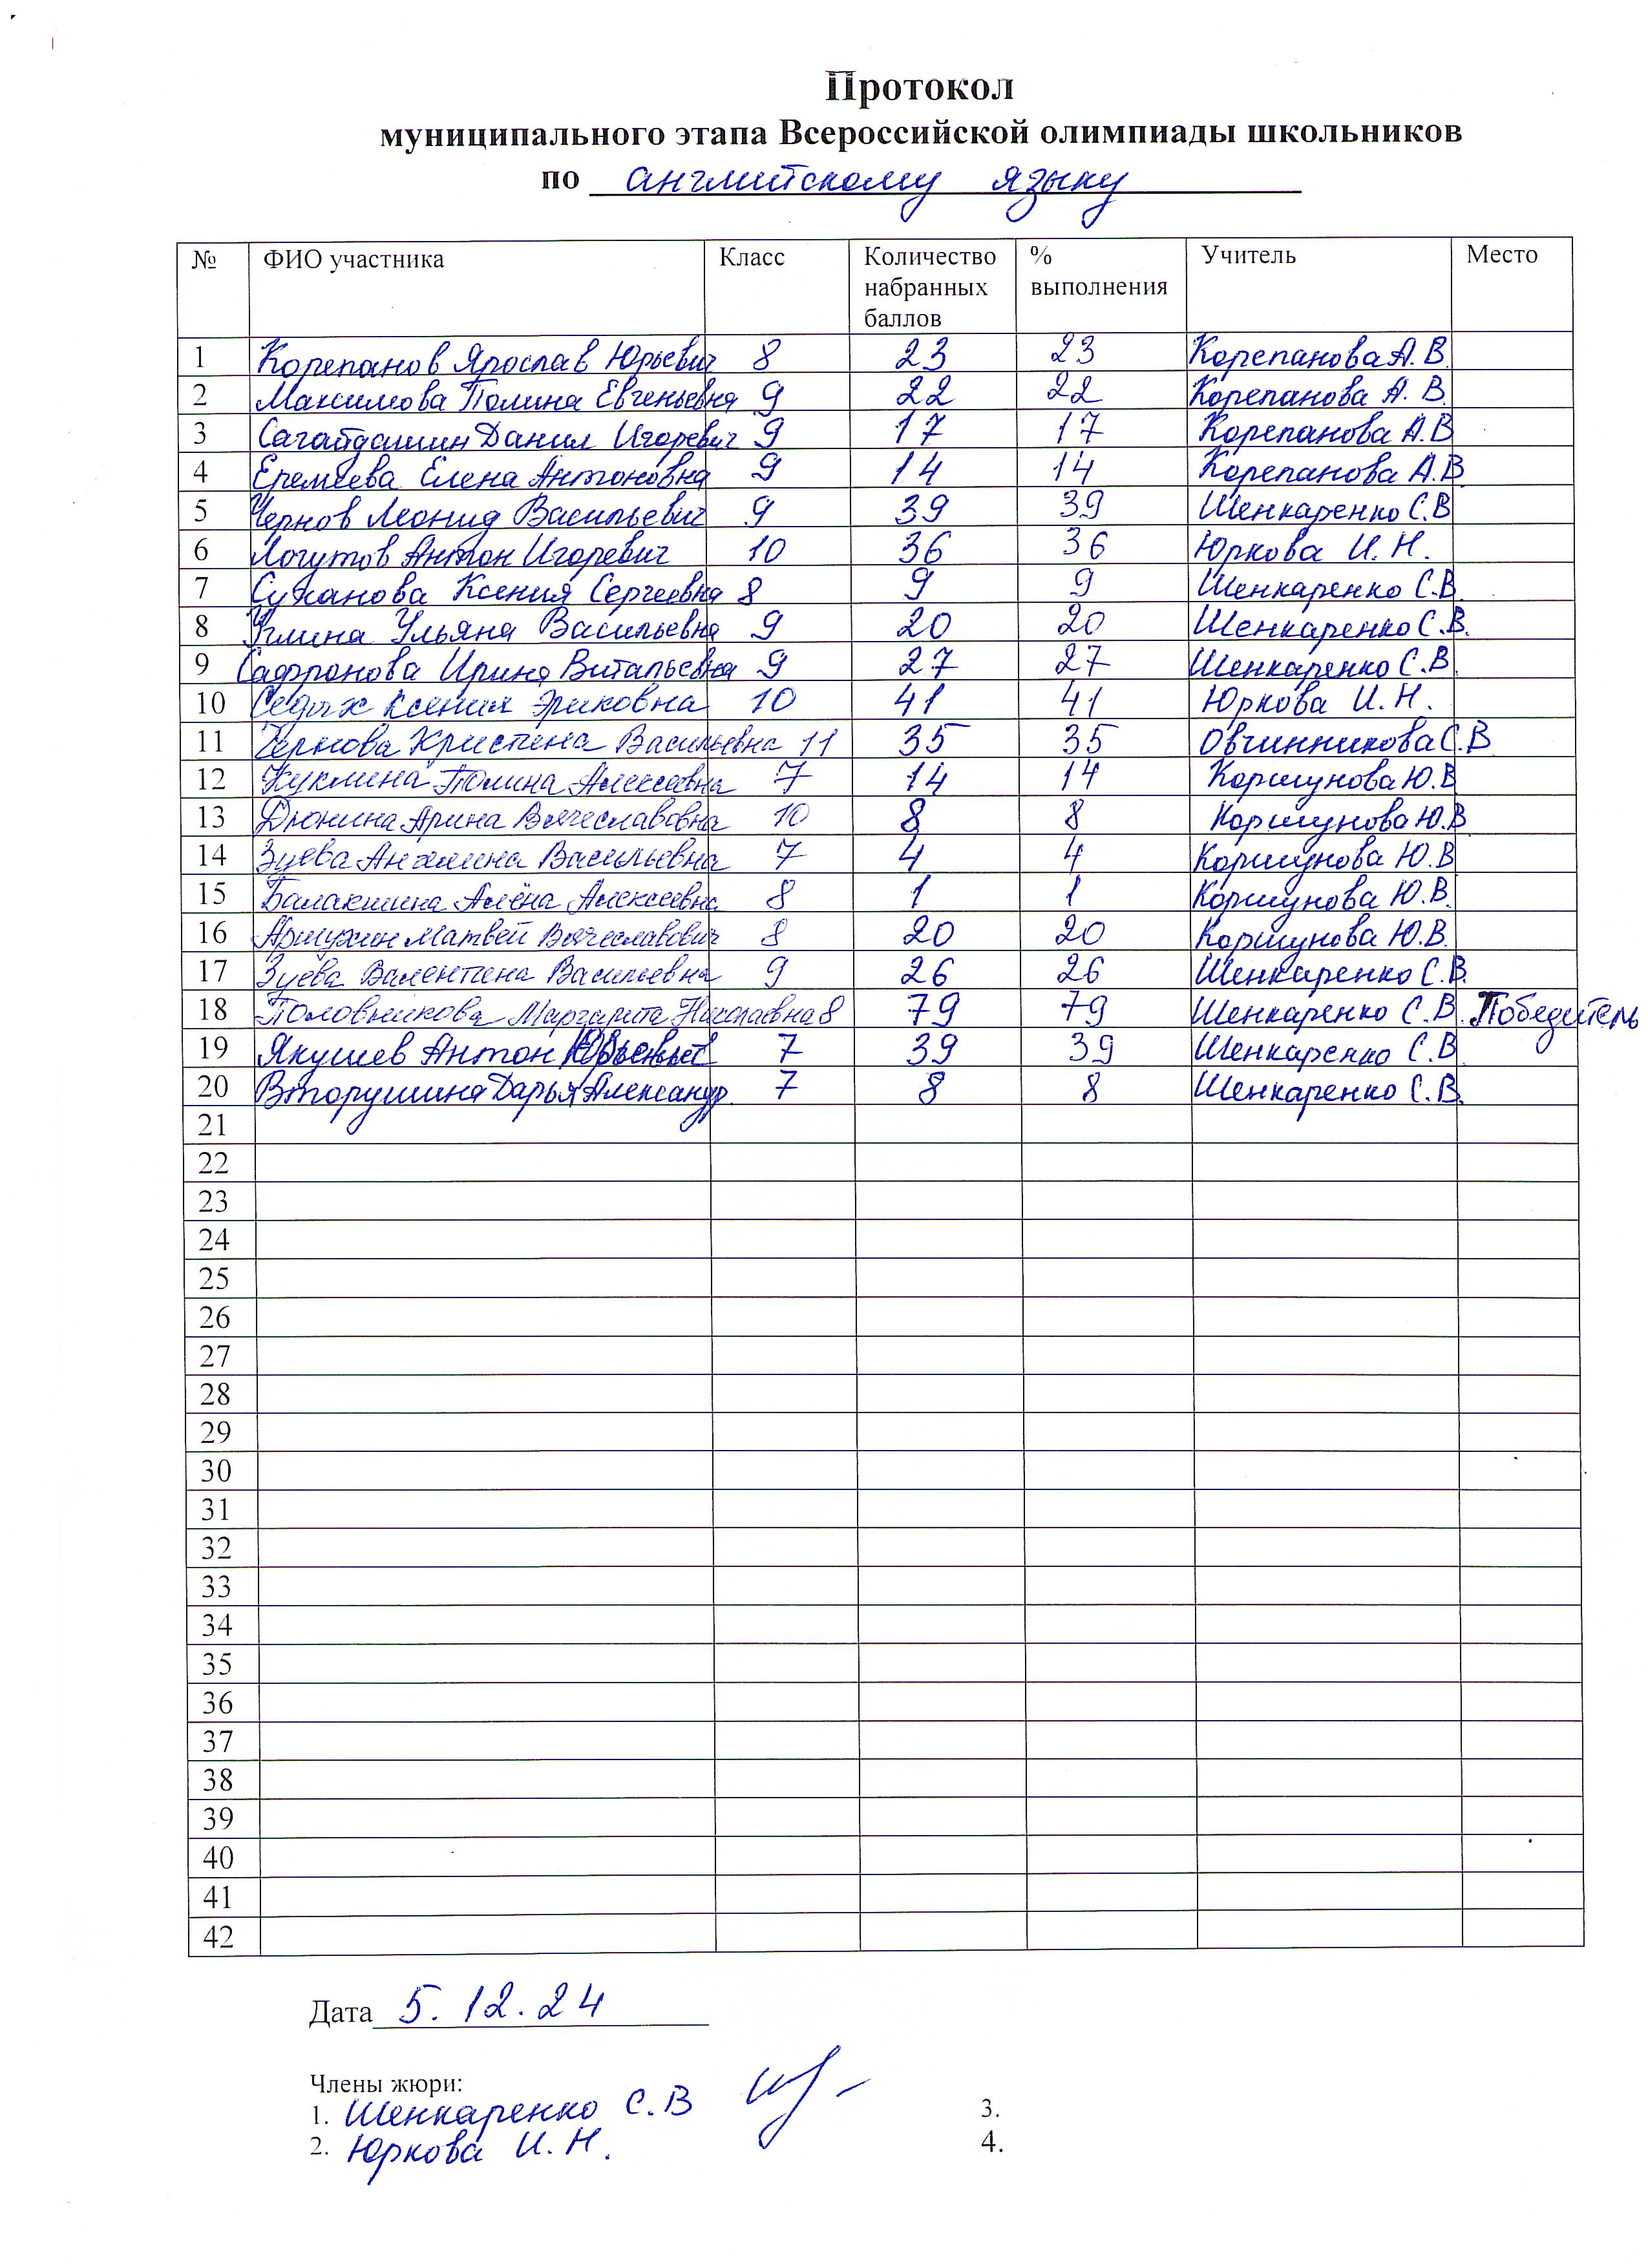 Протокол
муниципального этапа Всероссийской олимпиады школьников
по английскому языку
№ ФИО участника Класс Количество набранных баллов % выполнения Учитель Место
1 Корепанов Ярослав Юрьевич 8 23 23 Корепанова А.В
2 Максимова Полина Евгеньевна 9 22 22 Корепанова А. В.
3 Сагайдашин Данил Игоревич 9 17 17 Корепанова А.В
4 Еремеева Елена Антоновна 9 14 14 Корепанова А.В
5 Чернов Леонид Васильевич 9 39 39 Шенкаренко С.В
6 Логутов Антон Игоревич 10 36 36 Юркова И. Н.
7 Суханова Ксения Сергеевна 8 9 9 Шенкаренко С.В
8 Ульяна Васильевна 9 20 20 Шенкаренко С.В.
9 Сафронова Ирина Витальевна 9 27 27 Шенкаренко С.В.
10 Седых Ксения Эриковна 10 41 41 Юркова И. Н.
11 Чернова Кристина Васильевна 11 35 35 Овчинникова С.В
12 Куклина Полина Алексеевна 7 14 14 Коршунова Ю.В
13 Дюнина Арина Вячеславовна 10 8 8 Коршунова Ю.В
14 Зуева Ангелина Васильевна 7 4 4 Коршунова Ю.В
15 Балакшина Алёна Алексеевна 8 1 1 Коршунова Ю.В.
16 Матвей Вячеславович 8 20 20 Коршунова Ю.В.
17 Зуева Валентина Васильевна 9 26 26 Шенкаренко С.В.
18 Половникова Маргарита Николаевна 8 79 79 Шенкаренко С.В. Победитель
19 Якушев Антон Юрьевич 7 39 39 Шенкаренко С.В
20 Вторушина Дарья Александр. 7 8 8 Шенкаренко С.В.
21
22
23
24
25
26
27
28
29
30
31
32
33
34
35
36
37
38
39
40
41
42
Дата 5.12.24
Члены жюри:
1. Шенкаренко С.В 3.
2. Юркова И.Н. 4.